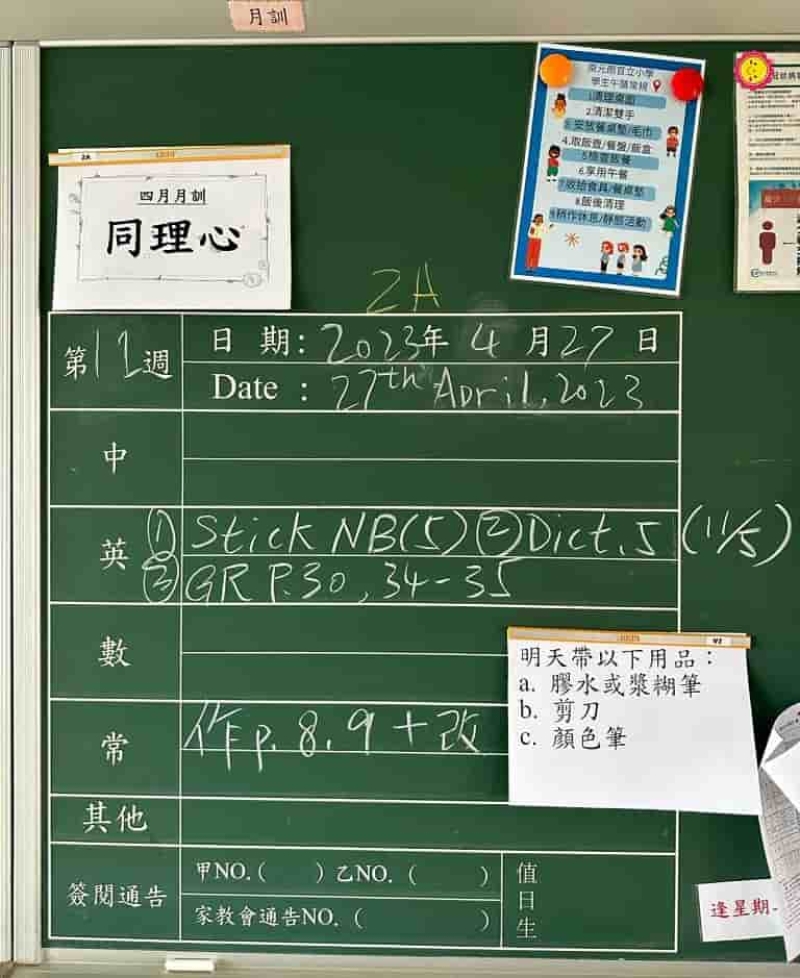 月訓
2A
四月月訓
同理心
官立小學
學生午膳常規
1.清理桌面
2.清潔雙手
3.安放餐桌墊/毛巾
4.取飯壺/餐盤/飯盒
5.檢查飯餐
6.享用午餐
7.收拾食具/餐桌墊
8.飯後清理
9.稍作休息/靜態活動
2A
第12週
日 期: 2023年 4 月27 日
Date : 27th April, 2023
中
英
① Stick NB(5) ② Dict. 5 (11/5)
③ GR P.30, 34-35
數
常
作p. 8, 9 + 改
明天帶以下用品：
a. 膠水或漿糊筆
b. 剪刀
c. 顏色筆
其他
簽閱通告
甲NO. ( ) 乙NO. ( )
家教會通告NO. ( )
值日生
逢星期